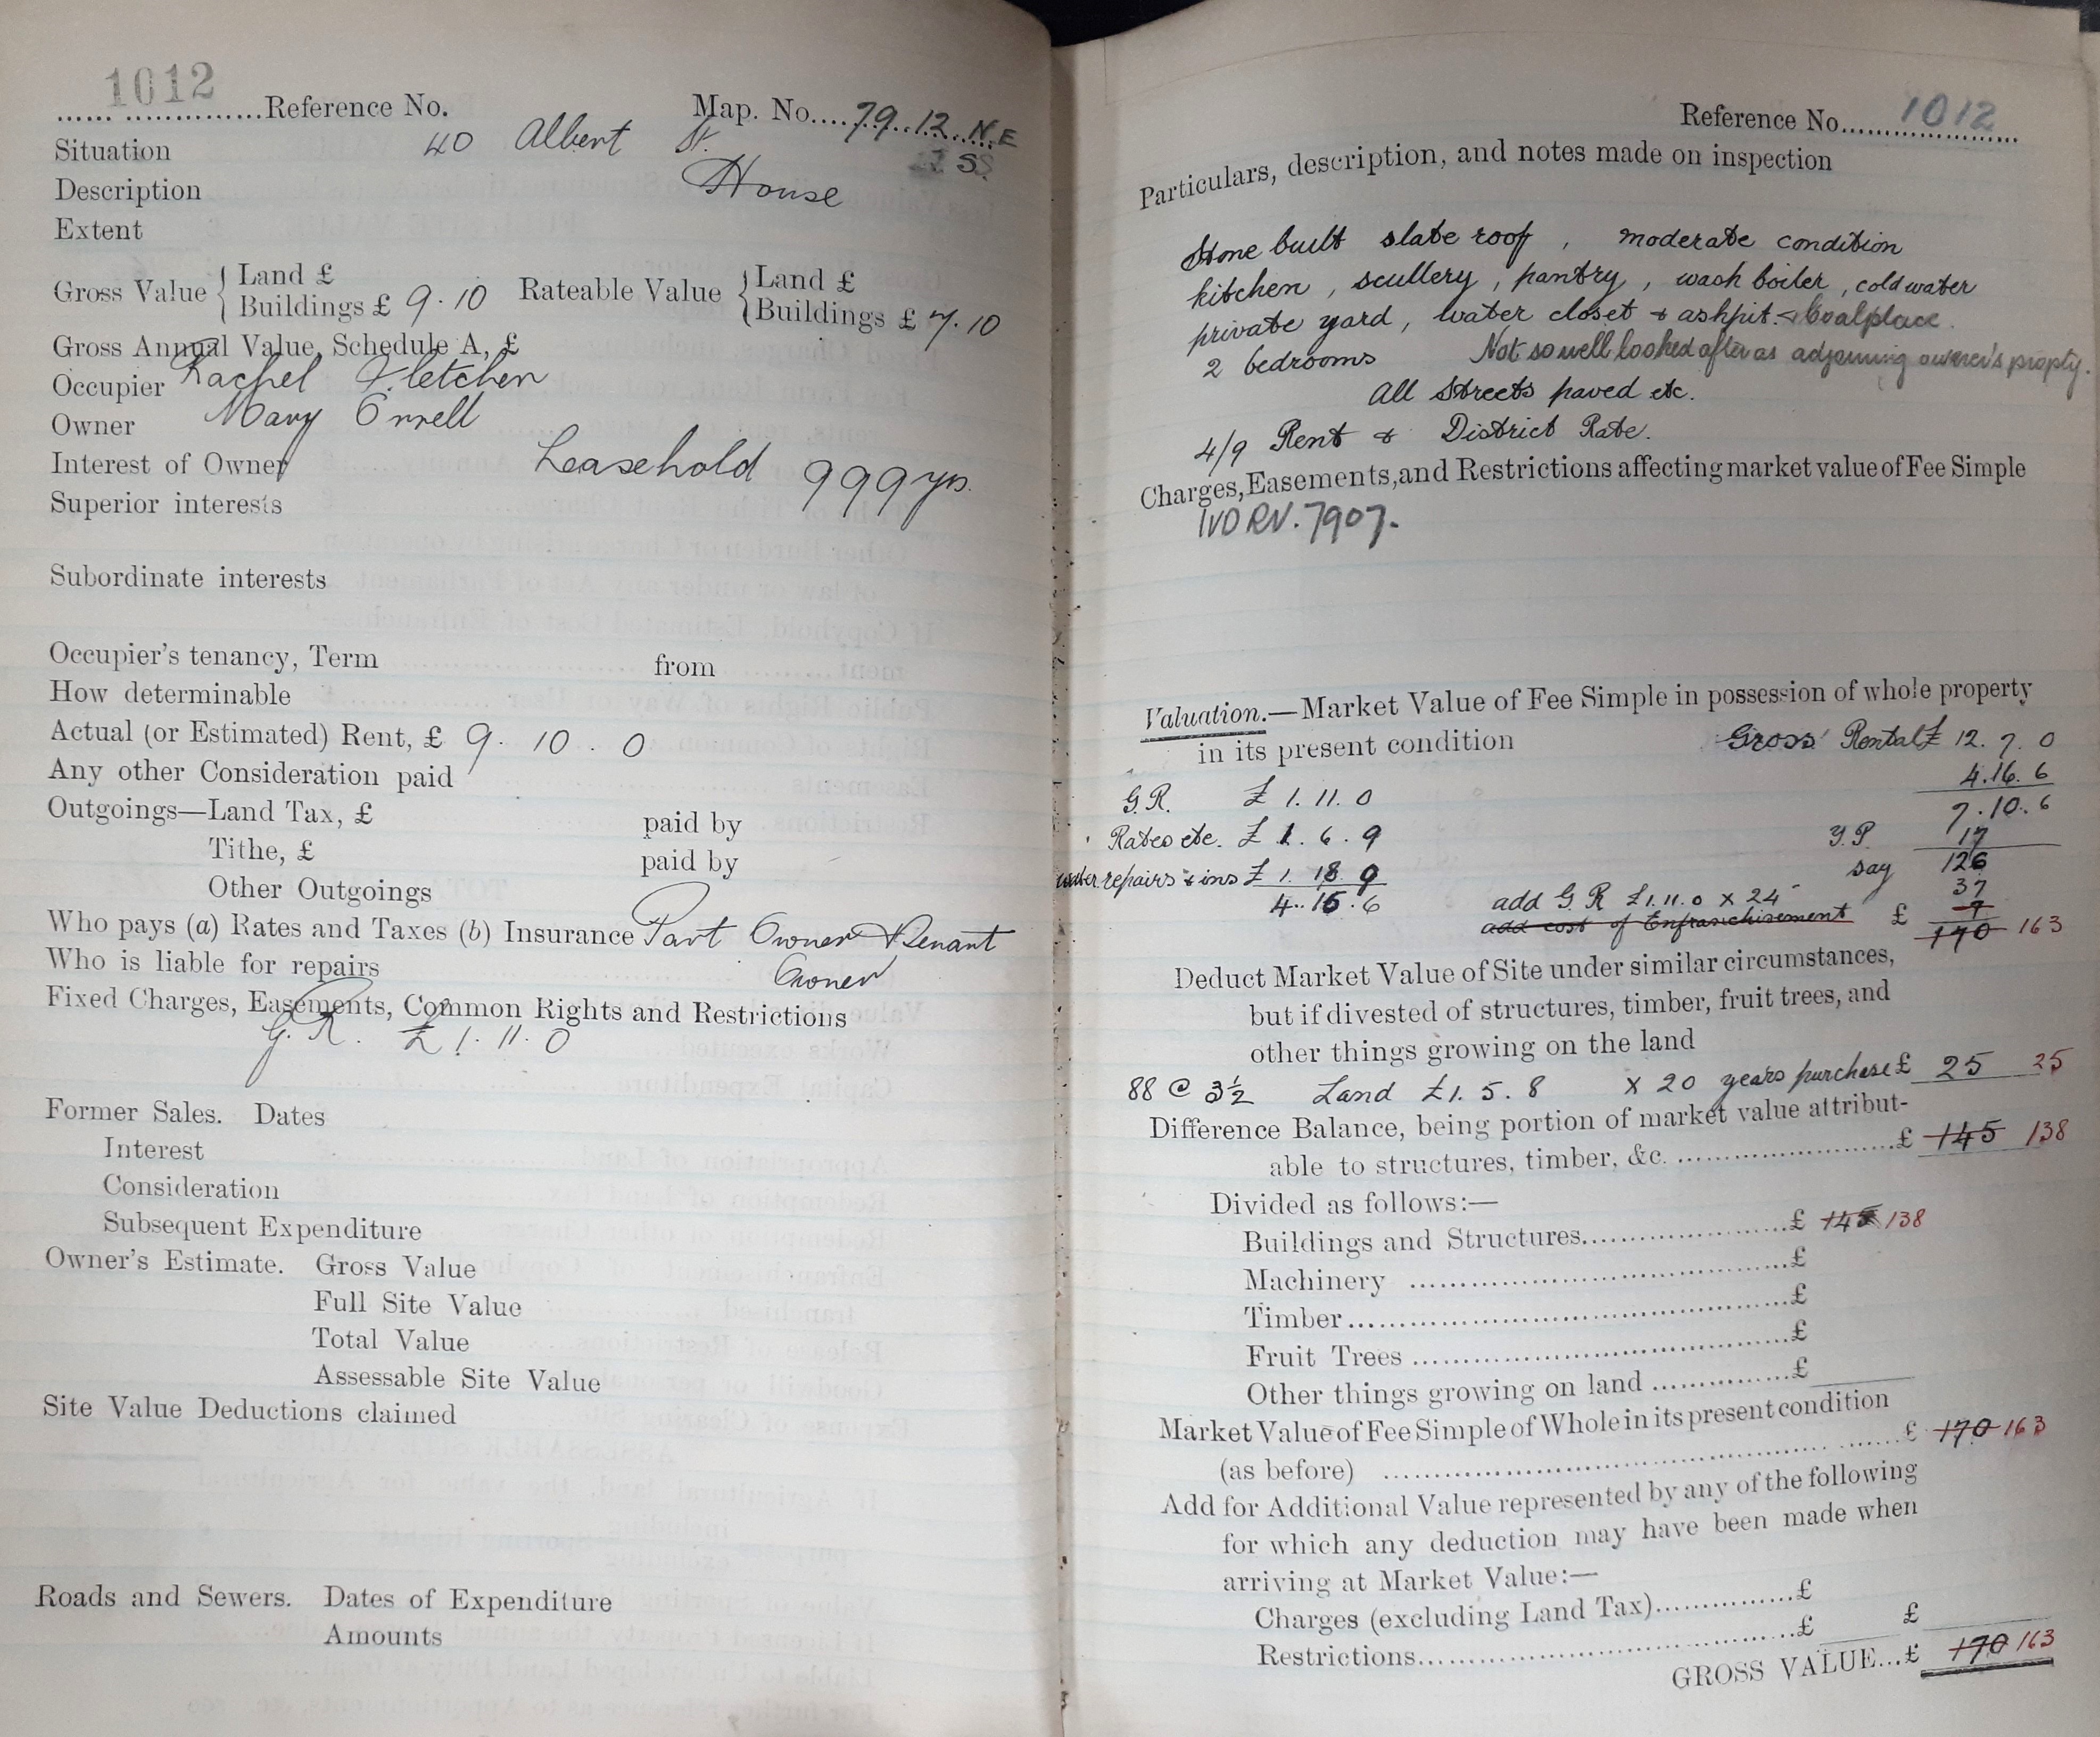 1012
...................Reference No.
Map. No....79.12.N.E
Situation 40 Albert St.
SS
Description House
Extent
Gross Value { Land £
Buildings £ 9.10
Rateable Value { Land £
Buildings £ 7.10
Gross Annual Value, Schedule A, £
Occupier Rachel Fletcher
Owner Mary Orrell
Interest of Owner Leasehold 999 yrs.
Superior interests
Subordinate interests
Occupier's tenancy, Term from
How determinable
Actual (or Estimated) Rent, £ 9. 10. 0
Any other Consideration paid
Outgoings—Land Tax, £ paid by
Tithe, £ paid by
Other Outgoings
Who pays (a) Rates and Taxes (b) Insurance Part Owner & Tenant
Who is liable for repairs Owner
Fixed Charges, Easements, Common Rights and Restrictions
G. R. £1. 11. 0
Former Sales. Dates
Interest
Consideration
Subsequent Expenditure
Owner's Estimate. Gross Value
Full Site Value
Total Value
Assessable Site Value
Site Value Deductions claimed
Roads and Sewers. Dates of Expenditure
Amounts
Reference No. 1012
Particulars, description, and notes made on inspection
Stone built slate roof, moderate condition
kitchen, scullery, pantry, wash boiler, cold water
private yard, water closet & ashpit. & Coalplace.
2 bedrooms Not so well looked after as adjoining owner's propty.
All Streets paved etc.
4/9 Rent & District Rate.
Charges, Easements, and Restrictions affecting market value of Fee Simple
7907.
Valuation.—Market Value of Fee Simple in possession of whole property
in its present condition Gross Rental £ 12. 7. 0
4.16. 6
G.R. £ 1. 11. 0
7.10.6
Rates etc. £ 1. 6. 9
Y.P. 17
water repairs & ins £ 1. 18. 9
say 126
4. 16. 6
add G R £1.11.0 x 24 37
add cost of Enfranchisement 7
£ 170 163
Deduct Market Value of Site under similar circumstances,
but if divested of structures, timber, fruit trees, and
other things growing on the land
88 @ 3½ Land £1. 5. 8 x 20 years purchase £ 25 25
Difference Balance, being portion of market value attribut-
able to structures, timber, &c. ........................£ 145 138
Divided as follows:—
Buildings and Structures........................£ 145 138
Machinery ........................£
Timber........................£
Fruit Trees ........................£
Other things growing on land ................£
Market Value of Fee Simple of Whole in its present condition
(as before) ........................£ 170 163
Add for Additional Value represented by any of the following
for which any deduction may have been made when
arriving at Market Value:—
Charges (excluding Land Tax)................£
Restrictions........................£ £
GROSS VALUE...£ 170 163